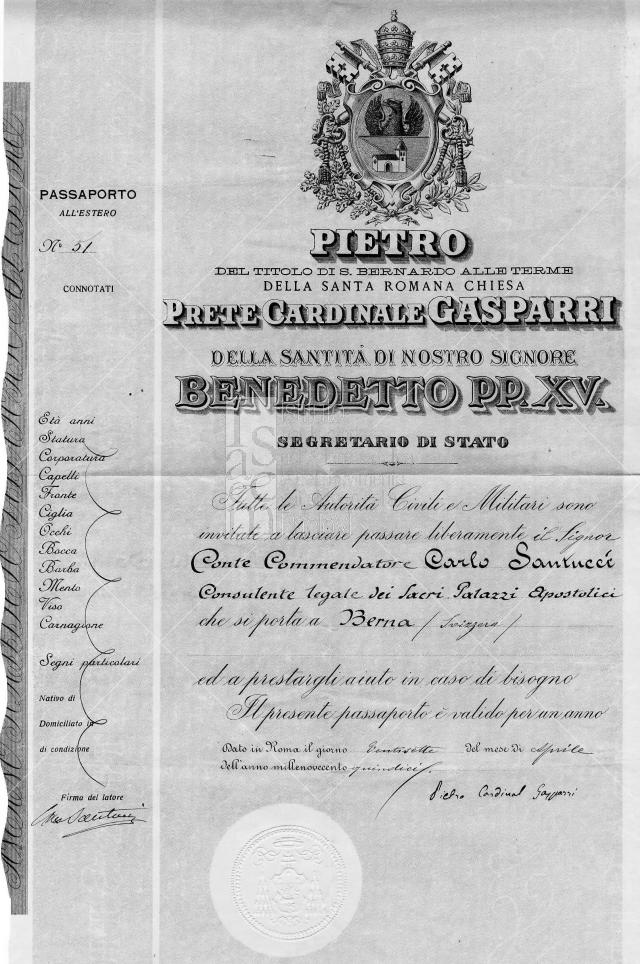 PASSAPORTO
ALL'ESTERO
Nº 51
CONNOTATI
Età anni
Statura
Corporatura
Capelli
Fronte
Ciglia
Occhi
Bocca
Barba
Mento
Viso
Carnagione
Segni particolari
Nativo di
Domiciliato in
di condizione
Firma del latore
PIETRO
DEL TITOLO DI S. BERNARDO ALLE TERME
DELLA SANTA ROMANA CHIESA
PRETE CARDINALE GASPARRI
DELLA SANTITÀ DI NOSTRO SIGNORE
BENEDETTO PP. XV.
SEGRETARIO DI STATO
Tutte le Autorità Civili e Militari sono
invitate a lasciare passare liberamente il Signor
Conte Commendatore Carlo Santucci
Consulente legale dei Sacri Palazzi Apostolici
che si porta a Berna (Svizzera)
ed a prestargli aiuto in caso di bisogno
Il presente passaporto è valido per un anno
Dato in Roma il giorno ventisette del mese di Aprile
dell'anno millenovecento quindici
Pietro Cardinal Gasparri